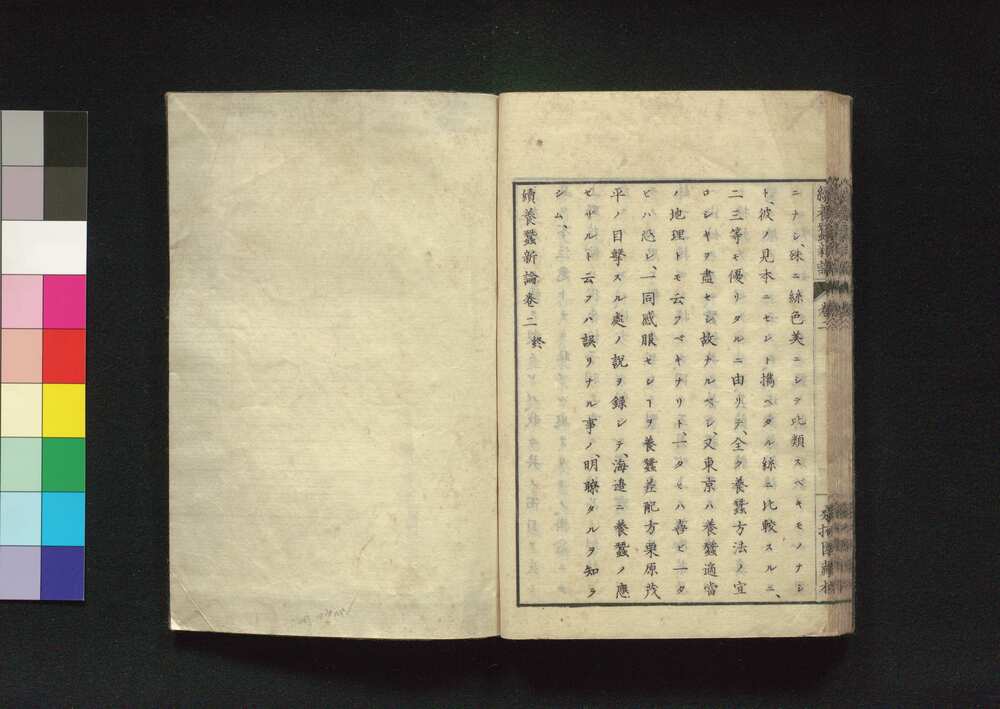 ニナシ、殊ニ絲色美ニシテ比類スベキモノナシ
ト、彼ノ見本ニセント携ベタル絲ニ比較スルニ、
二三等モ優リタルニ由リテ、全ク養蠶方法ノ宜
ロシキヲ盡セシ故ナルベシ、又東京ハ養蠶適當
ノ地理トモ云フベキナリト、一タビハ喜ビ一タ
ビハ恐レ、一同感服セシヿヲ養蠶差配方栗原茂
平ノ目擊スル處ノ說ヲ錄シテ、海邉ニ養蠶ノ應
ゼザルト云フハ誤リナル事ノ、明瞭タルヲ知ラ
シム、
續養蠶新論卷二 終